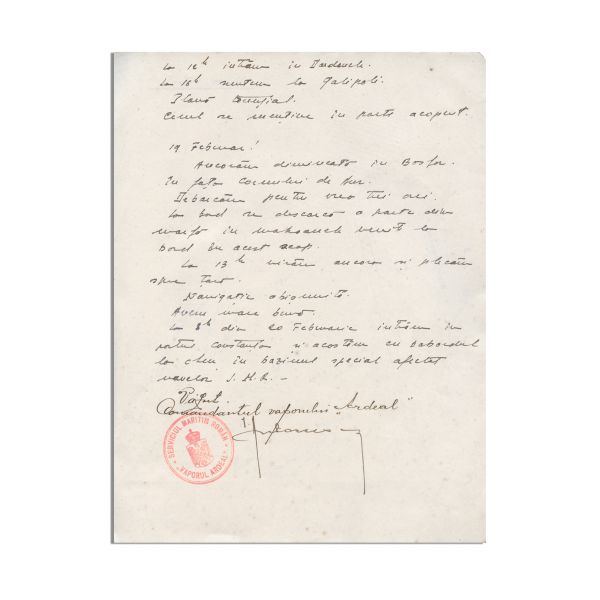 La 12h intrăm in Dardanele.
La 18h suntem la Galipoli.
Plouă torențial.
Cerul se menține in parte acoperit.
19 Februar!
Ancorăm dimineața in Bosfor.
In fața Cornului de Aur.
Debarcăm pentru vreo trei ore.
La bord se descarcă o parte din
marfă in mahoanele venit la
bord in acest scop.
La 13h virăm ancora și plecăm
spre țară.
Navigație obișnuită.
Avem mare bună.
La 8h din 20 Februarie intrăm in
portul Constanța și acostăm cu babordul
la cheu in bazinul special afectat
navelor S.M.R. –
Văzut.
Comandantul vaporului "Ardeal"
SERVICIUL MARITIM ROMÂN
"VAPORUL ARDEAL"